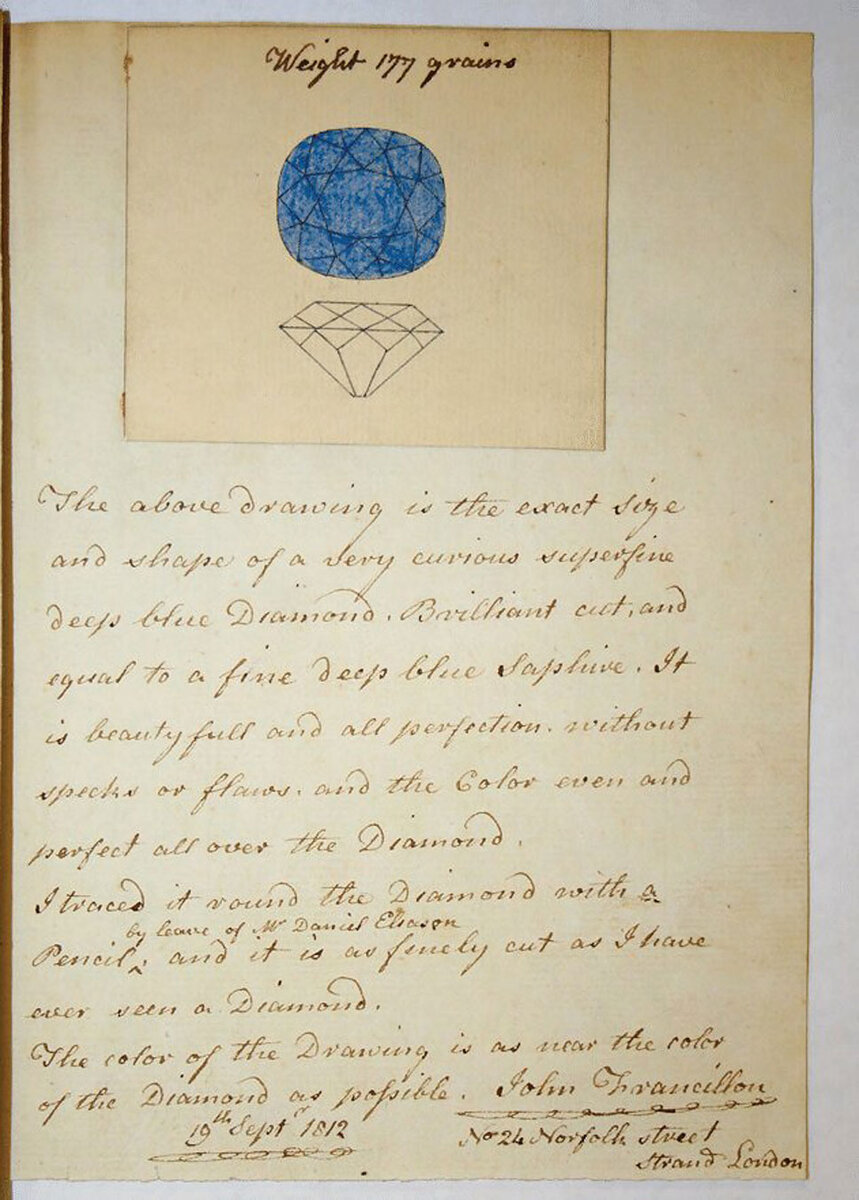 Weight 177 grains
The above drawing is the exact size
and shape of a very curious superfine
deep blue Diamond. Brilliant cut, and
equal to a fine deep blue Saphire. It
is beautyfull and all perfection. without
specks or flaws. and the Color even and
perfect all over the Diamond.
I traced it round the Diamond with a
by leave of Mr Daniel Eliason
Pencil ‸. and it is as finely cut as I have
ever seen a Diamond.
The color of the Drawing is as near the color
of the Diamond as poſsible. John Francillon
19th Sept r 1812
No 24 Norfolk street
Strand London